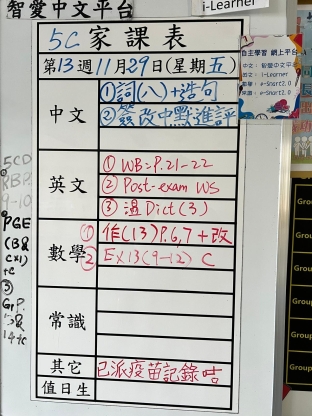 智愛中文平台
i-Learner
5C 家課表
第13週11月29日(星期五)
中文
①詞(八)+造句
②簽改中默進評
英文
① WB=P.21-22
② Post-exam WS
③ 溫Dict(3)
數學
① 作(13)P.6,7+改
② EX13(9-12) C
常識
其它
已派疫苗記錄咭
值日生
自主學習 網上平台
中文：智愛中文平台
英文：i-Learner
數學：e-Smart2.0
常識：e-Smart2.0
5CD
RBP.
9-10
PGE
(B8
Cx1)
+c
③
14+c
Grou
Group
Group
Group
Group